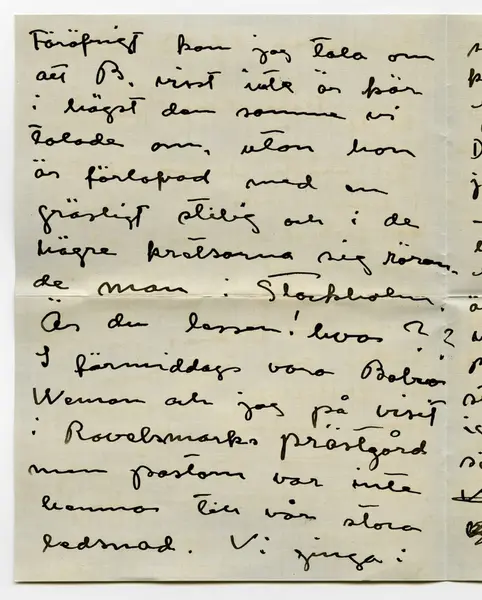 Föröfrigt kan jag tala om
att B. visst inte är kär
i högst den samme vi
talade om, utan hon
är förlofvad med en
gräsligt stilig och i de
högre kretsarna sig röran-
de man i Stockholm.
Är du lessen! hvas ??
I förmiddags voro
Weman och jag på visit
i Ravelsmarks prästgård
men pastorn var inte
hemma till vår stora
ledsnad. Vi gingo i